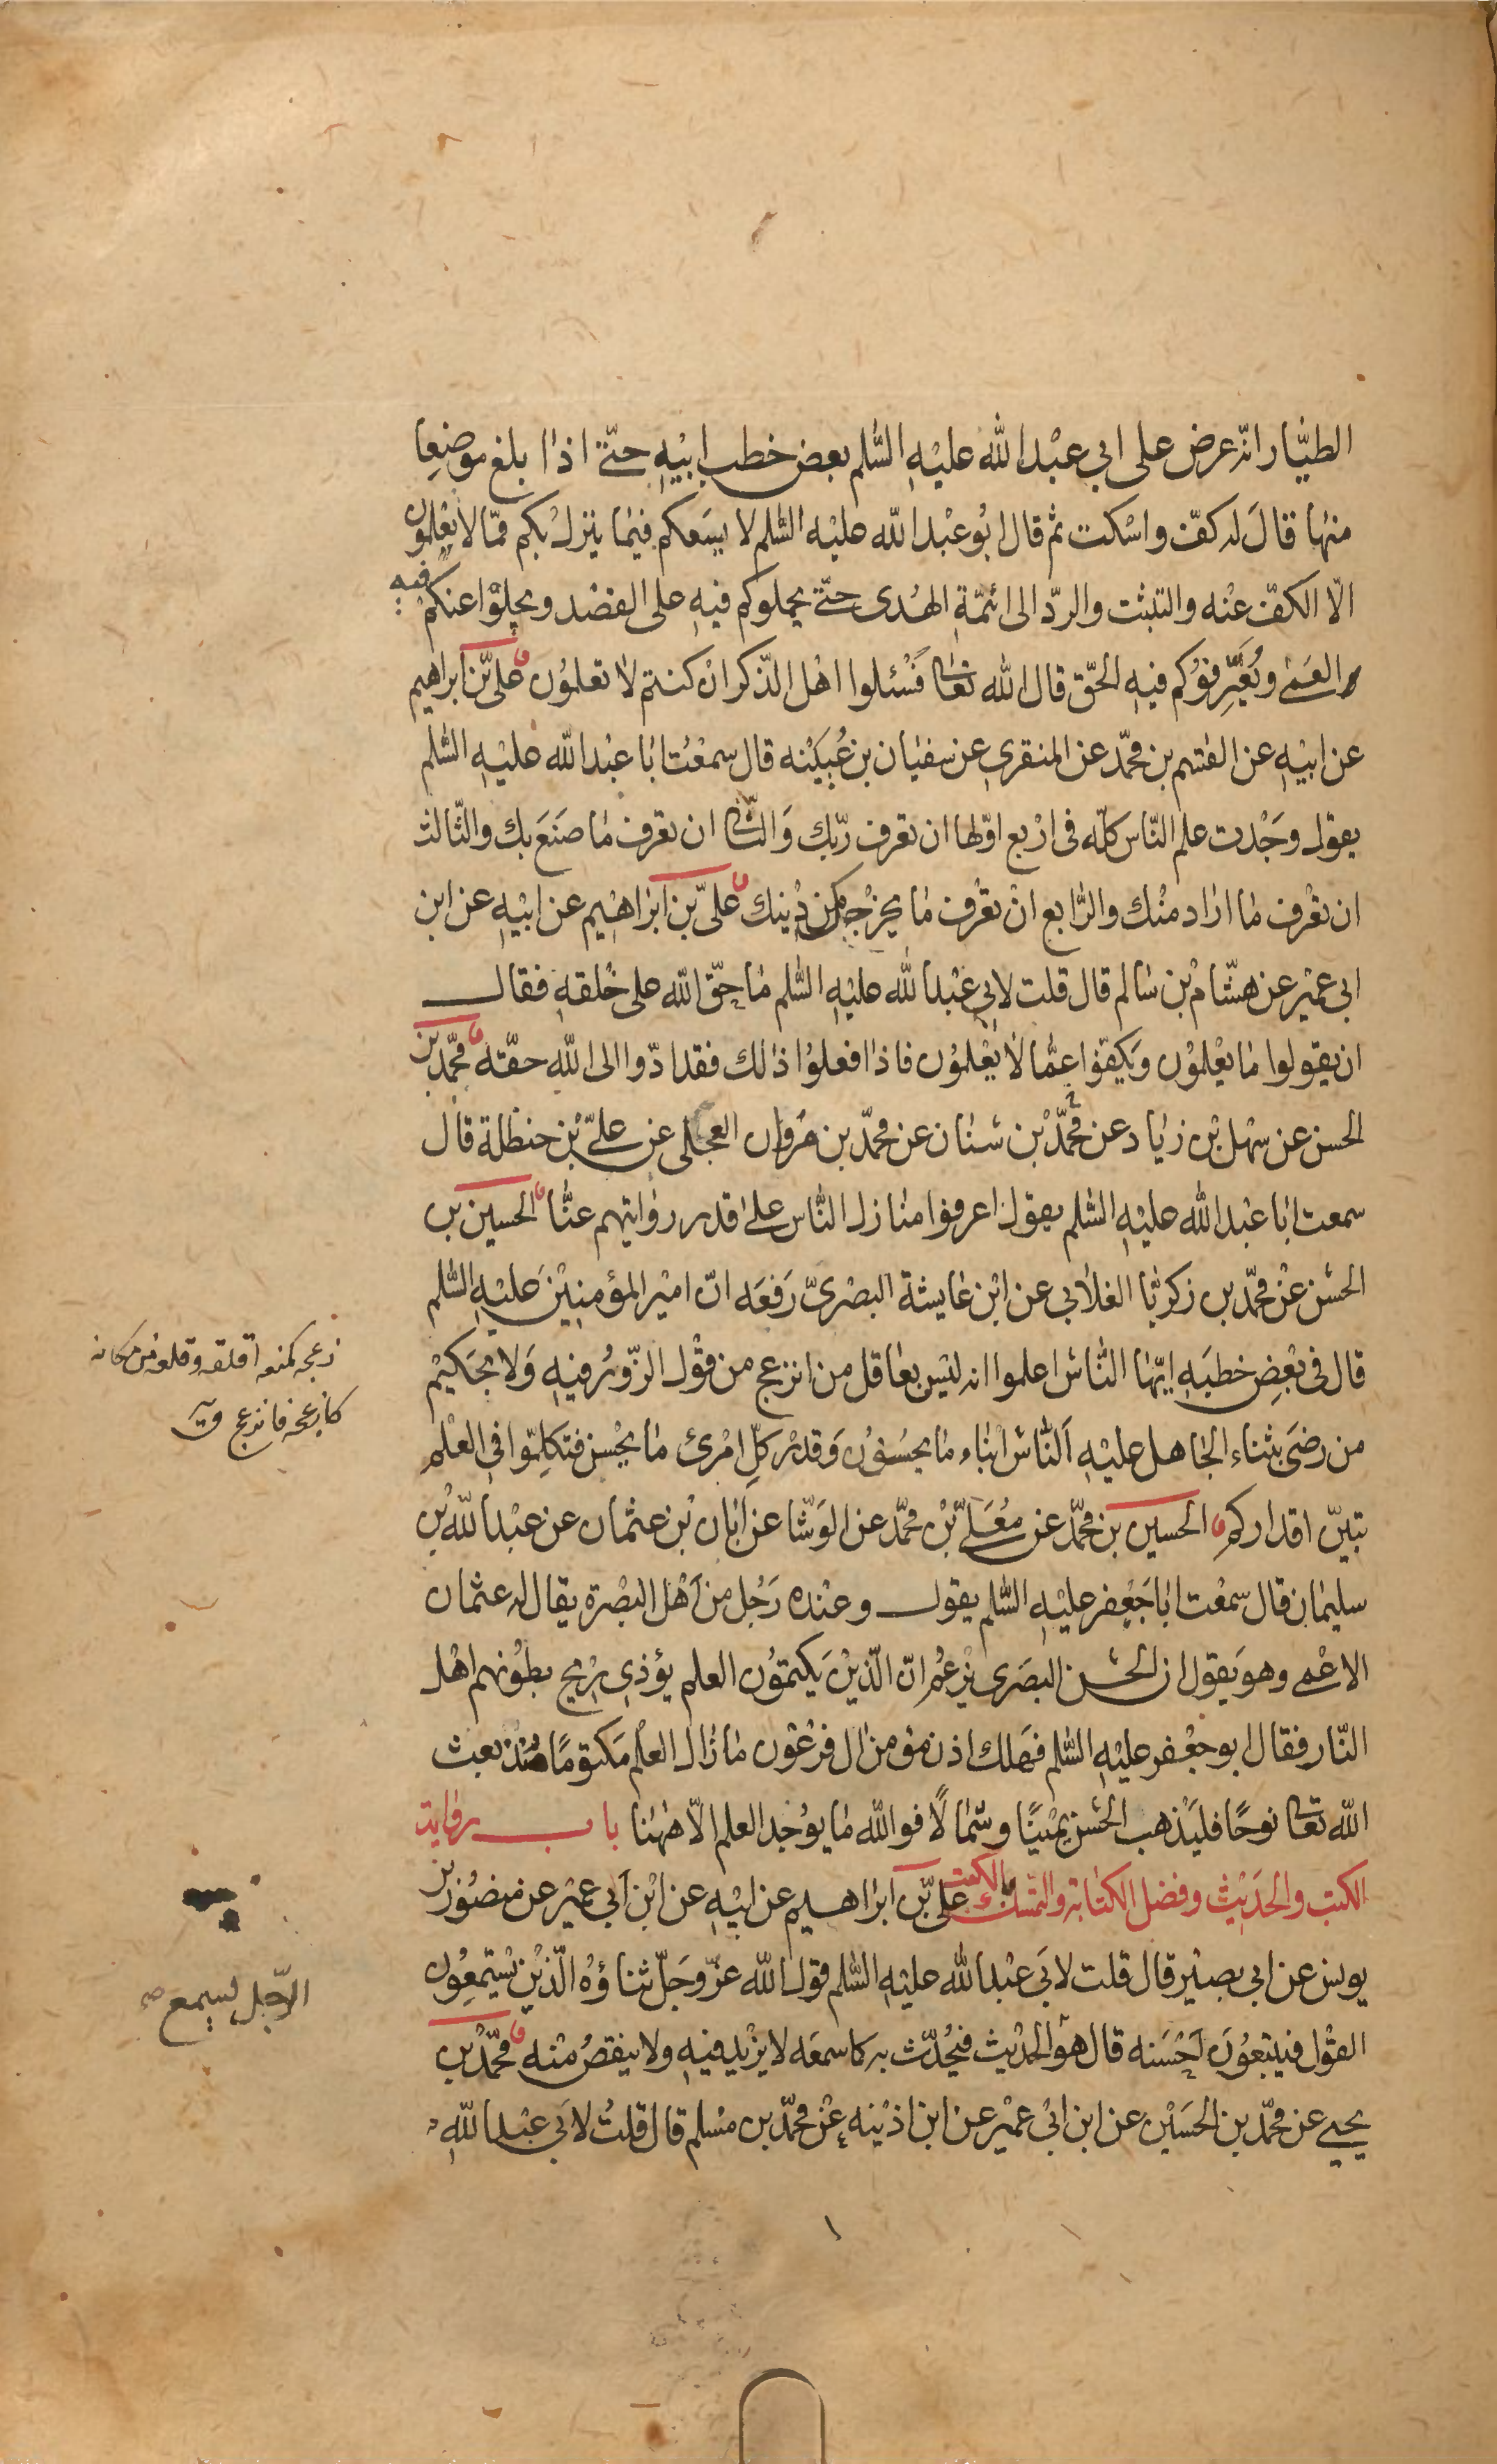 الطيّار انّه عرض على ابي عبْد الله عليْهِ السّلم بعض خطب ابيْهِ حتّى اذا بلغ موضعا
منها قالَ له كفّ واسْكت ثم قال ابُو عبْد الله عليْه السّلم لا يسَعكم فيما ينزل بكم ممّا لا تعْلمون
الّا الكفّ عنْه والتثبت والردّ الى ائمّةِ الهُدى حتّى يحملوكم فيهِ على القصْد ويجلوْا عنكم فيه
العمى ويُعَرِّفوُكم فيهِ الحقّ قال الله تعالى فسْئلوا اهْل الذّكر انْ كنتم لا تعلموُن علىّ بن ابراهيم
عن ابيْهِ عن القسم بن محمّد عن المنقري عن سفيان بن عُيَيْنه قال سمعْتُ ابا عبْد الله عليْهِ السّلم
يقول وجَدْت علم النّاس كلّه فى ارْبع اوّلها ان تعرف ربّك وَالثّانى ان تعرف ما صنَعَ بك والثّالث
ان تعْرف ما اراد منْك والرّابع انْ تعْرف ما يخرْجك من دْينك علىّ بن ابراهيْم عن ابيْهِ عن ابن
ابى عميْر عن هشّام بْن سالم قال قلت لابي عبْد الله عليْهِ السّلم ما حقّ الله على خلقهِ فقال
ان يقولوا ما يعْلموُن ويَكفوّا عمّا لا يعْلموُن فاذا فعلوُا ذالك فقد ادّوا الى الله حقّه محمّد بن
الحسن عن سهْل بْن زياد عن محمّد بْن سنان عن محمّد بن مروان العجلى عن علىّ بْن حنظلة قال
سمعت ابا عبْد الله عليْهِ السّلم يقول اعرفوا منازل النّاس على اقدر روايتهم عنّا الحسين بن
الحسَن عنْ محمّد بن زكريّا الغلابي عن ابْن عايشة البصْرىّ رَفعَه انّ امير المؤمنيْنَ عليْهِ السّلم
قال فى بعْضِ خطبَهِ ايّها النّاسُ اعلموا انه ليْس بعاقل من انزعج من قوْل الزّورُ فيْهِ وَلا بحَكيْم
من رضىَ بثناء الجاهل عليْهِ اَلنّاسُ ابناء ما يحسُنوُن وَقدْر كلِّ امْرئ ما يحْسن فتكلمّوا فى العلْمِ
تبيّن اقداركم الحسين بن محمّد عن مُعَلّى بْن محمّد عن الوَشّا عن ابان بْن عثمان عن عبْد الله بْن
سليمان قال سمعْت ابا جَعْفر عليْهِ السّلم يقول وعنْده رَجُل من اَهْل البصْرة يقال له عثمان
الاعْمى وهوَ يقول ان الحسَن البصَرى يزْعمُ انّ الّذيْن يَكتموُن العلم يؤذي رْيح بطوُنهم اهْل
النّار فقال ابو جعْفر عليْهِ السّلم فهَلك اذن مؤمن ال فرْعوْن ما زال العلْم مَكتوْمًا منْذ بعث
الله تعالى نوحًا فليَذْهب الحسَن يميْنًا وشمالًا فوالله ما يوُجد العلم الّا ههُنا باب رواية
الكتب والحدَيْث وفضل الكتابة والتمسّك بالكتب علىّ بْن ابراهيم عن ابيْهِ عن ابْن اَبي عميْر عن منصُوْر بن
يونس عن ابي بصيْر قال قلت لابَي عبْد الله عليْهِ السّلم قوْل الله عزّ وَجَلّ ثناؤهُ الّذيْن يسْتمعوُن
القوْل فيَتبعوُنَ اَحْسَنه قال هوَ الحديْث فيحُدّث به كما سمعَه لا يزْيد فيْهِ ولا ينقصُ منْه محمّد بْن
يحيى عن محمّد بن الحسَيْن عن ابن ابيْ عميْر عن ابن اذيْنه عنْ محمّد بن مسْلم قال قلتُ لابَي عبْد اللهِ
زعجه كمنعه اقلقه وقلعه من مكانه
كازعجه فانزعج ق
الرّجل يسمع صح